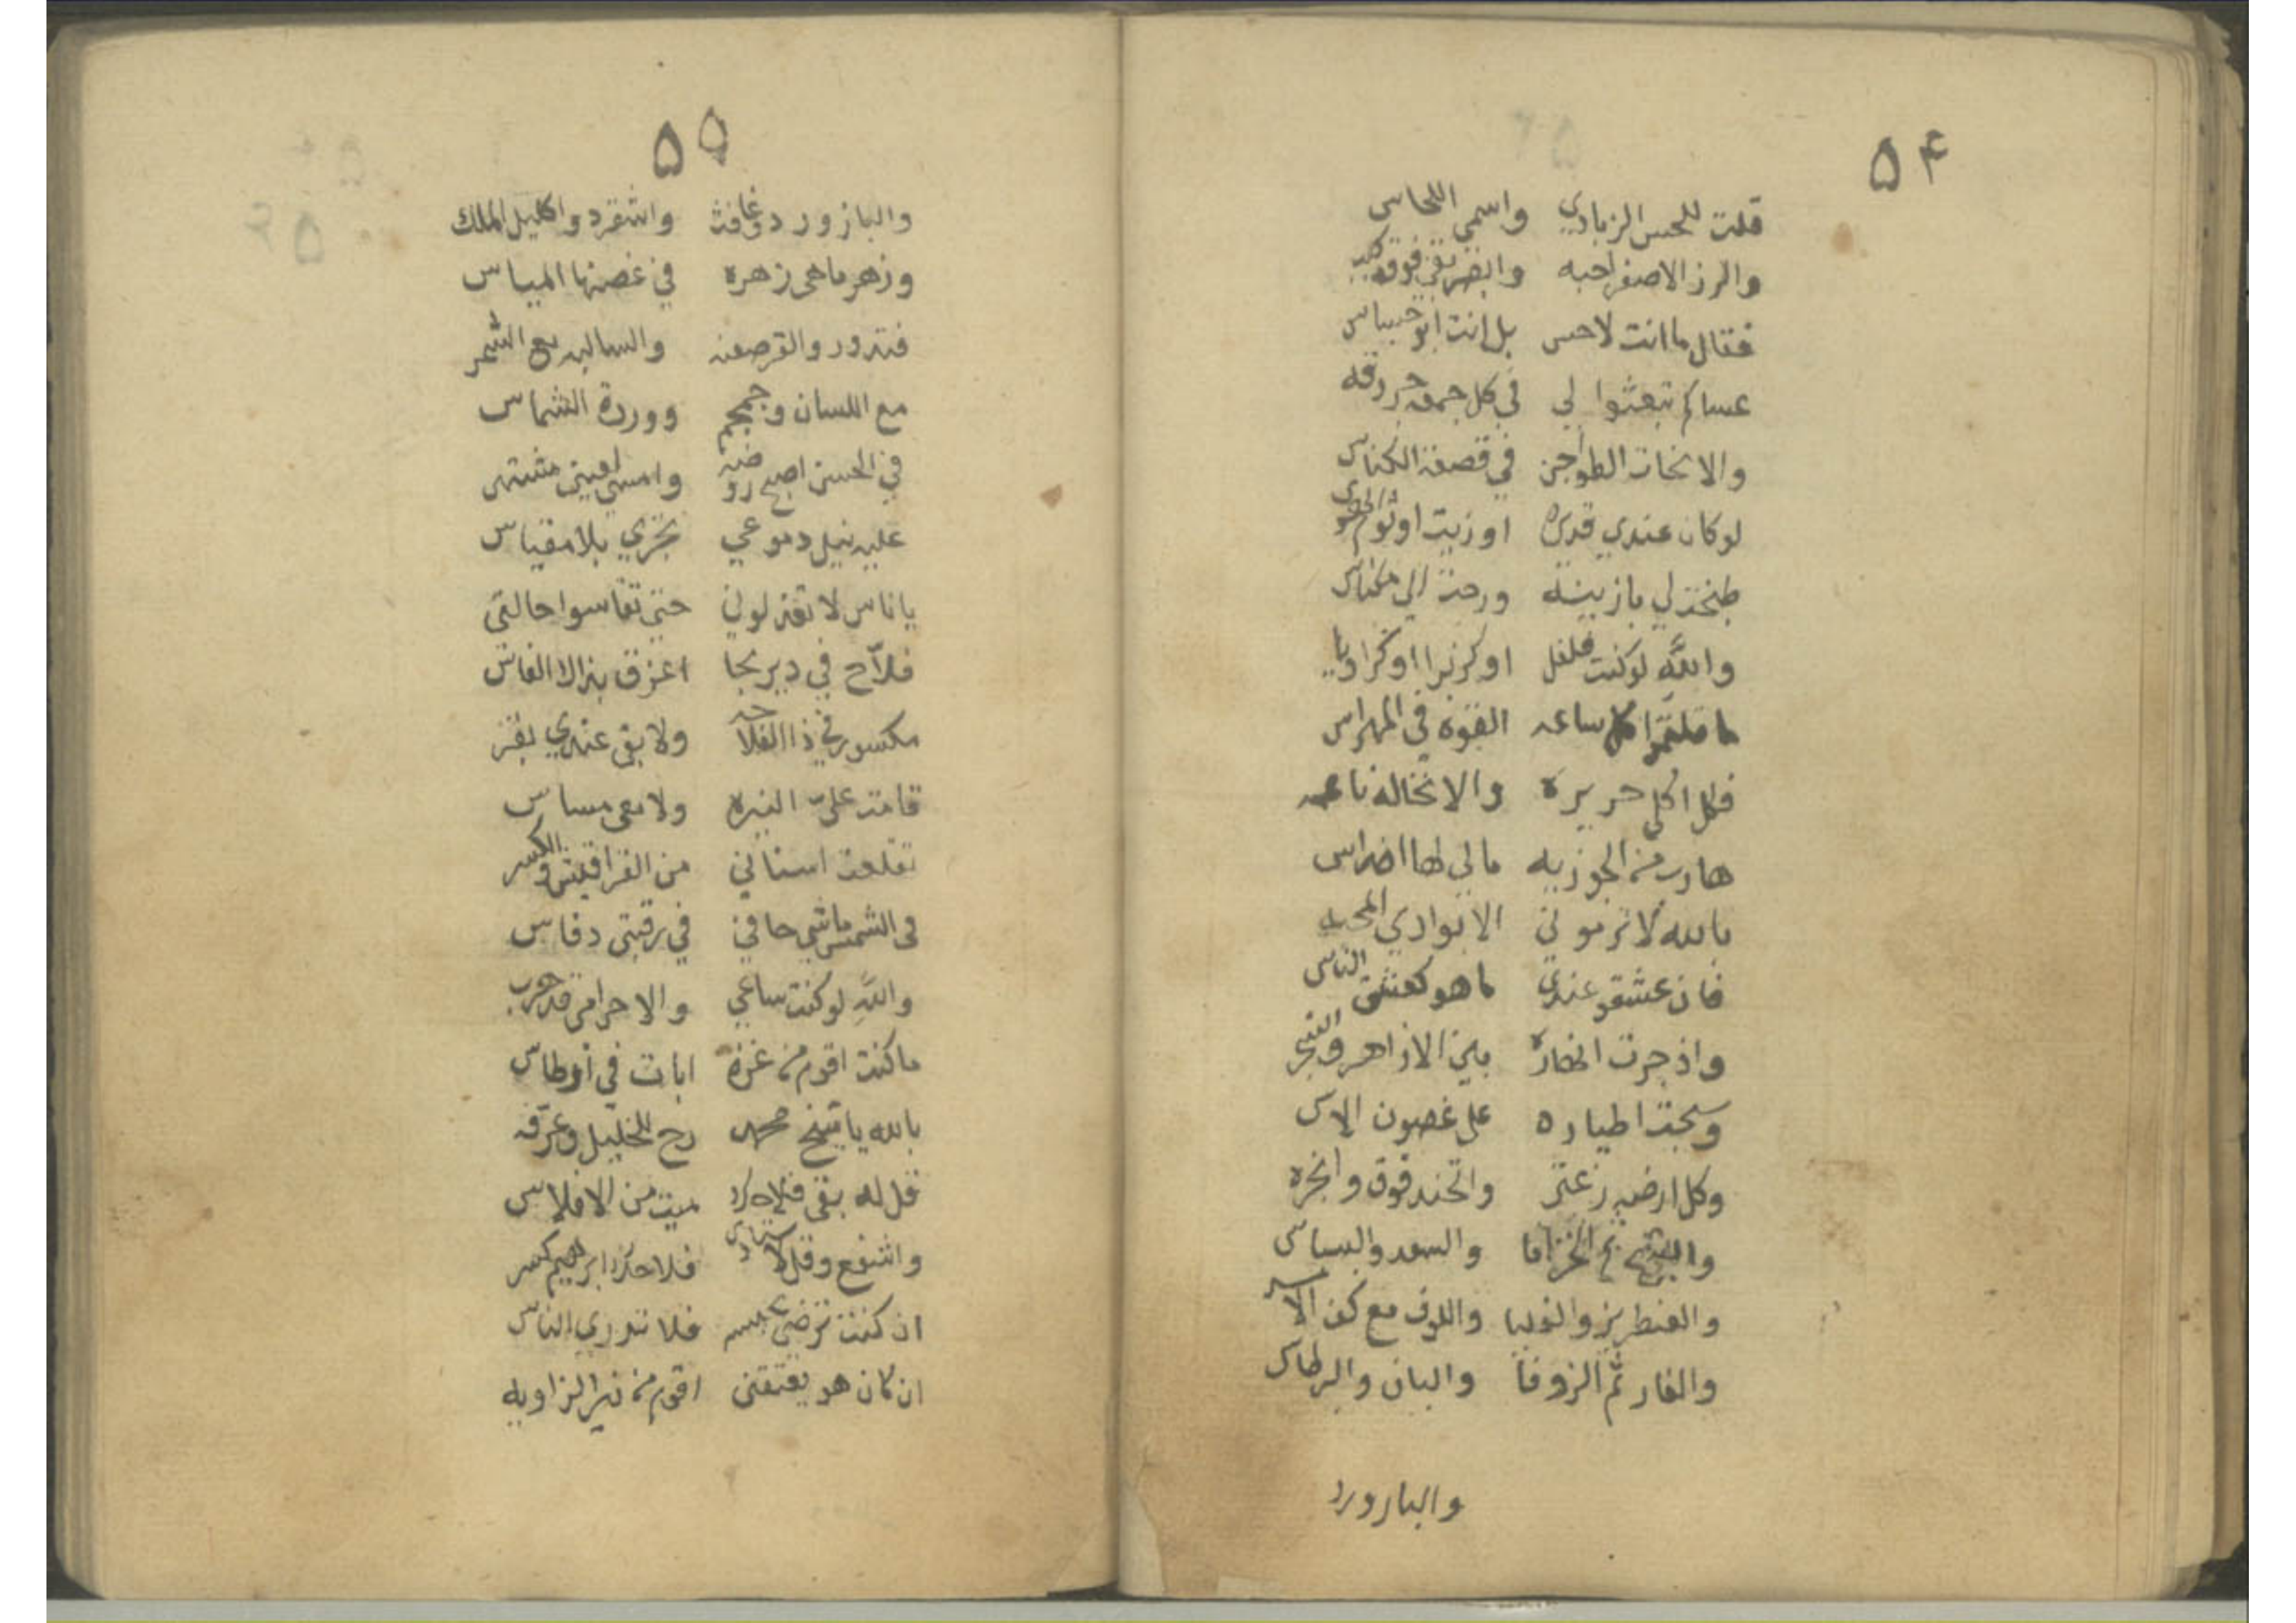 ٥٤
قلت للحس الزبادي واسمي اللحاس
والرز الاصفر احبه وابقى فوقه
فقال ما انت لاحس بل انت ابو حبباس
عساكم تبعثوا لي في كل جمعه
والانخات الطواجن في قصفة الكناس
لو كان عندي قدره او زيت او ثوم
طبخت لي بازينه ورحت الي مكناس
والله لو كنت فلفل او كزبرا او كراويا
ما قلتموا كل ساعه القوه في المهراس
فكل اكلي حريره والانخاله ناعمه
هارب من الجوزيه مالي لها اضراس
بالله لا ترموني الا بوادي
فان عشقو عندي ما هو كعشق الناس
واذ جرت انهاره بين الازاهر
وسبحت اطياره على غصون الاس
وكل ارضه زعتر والحندقوق وانجره
والشيح ثم الخزاما والسعد والبسباس
واللوف مع كف
والغار ثم الزوفا والبان والبرطاس
والبارورد
٥٥
والبازورد وغافث واكليل الملك
وزهر ماهى زهره في غصنها المياس
والقرصعنه مع الشمر
مع اللسان وجمجم ووردة الشماس
في الحسن اصبح روضة وامسى لعيني مشتهى
عليه نيل دموعي تجري بلا مقياس
يا ناس لا تعذلوني حتى تقاسوا حالتي
فلاح في دير نجا اعزق بذالا الفاس
مكسور في ذا الفلاحه ولا بقى عندي بقر
قامت على النيره ولا معي مساس
تقلعت اسناني من القراقيش
في الشمس ماشي حافي في رقبتي دفاس
والله لو كنت ساعي والاحرامي قد هرب
ما كنت اقوم من غزه ابات في
بالله يا شيخ محمد رح للخليل وعرفه
قل له بقى فلاحك ميت من الافلاس
واشفع وقل فلاحك ابرهيم كسر
ان كنت ترضى فلا تدري الناس
ان كان هو يعتقني اقوم من نير الزاويه